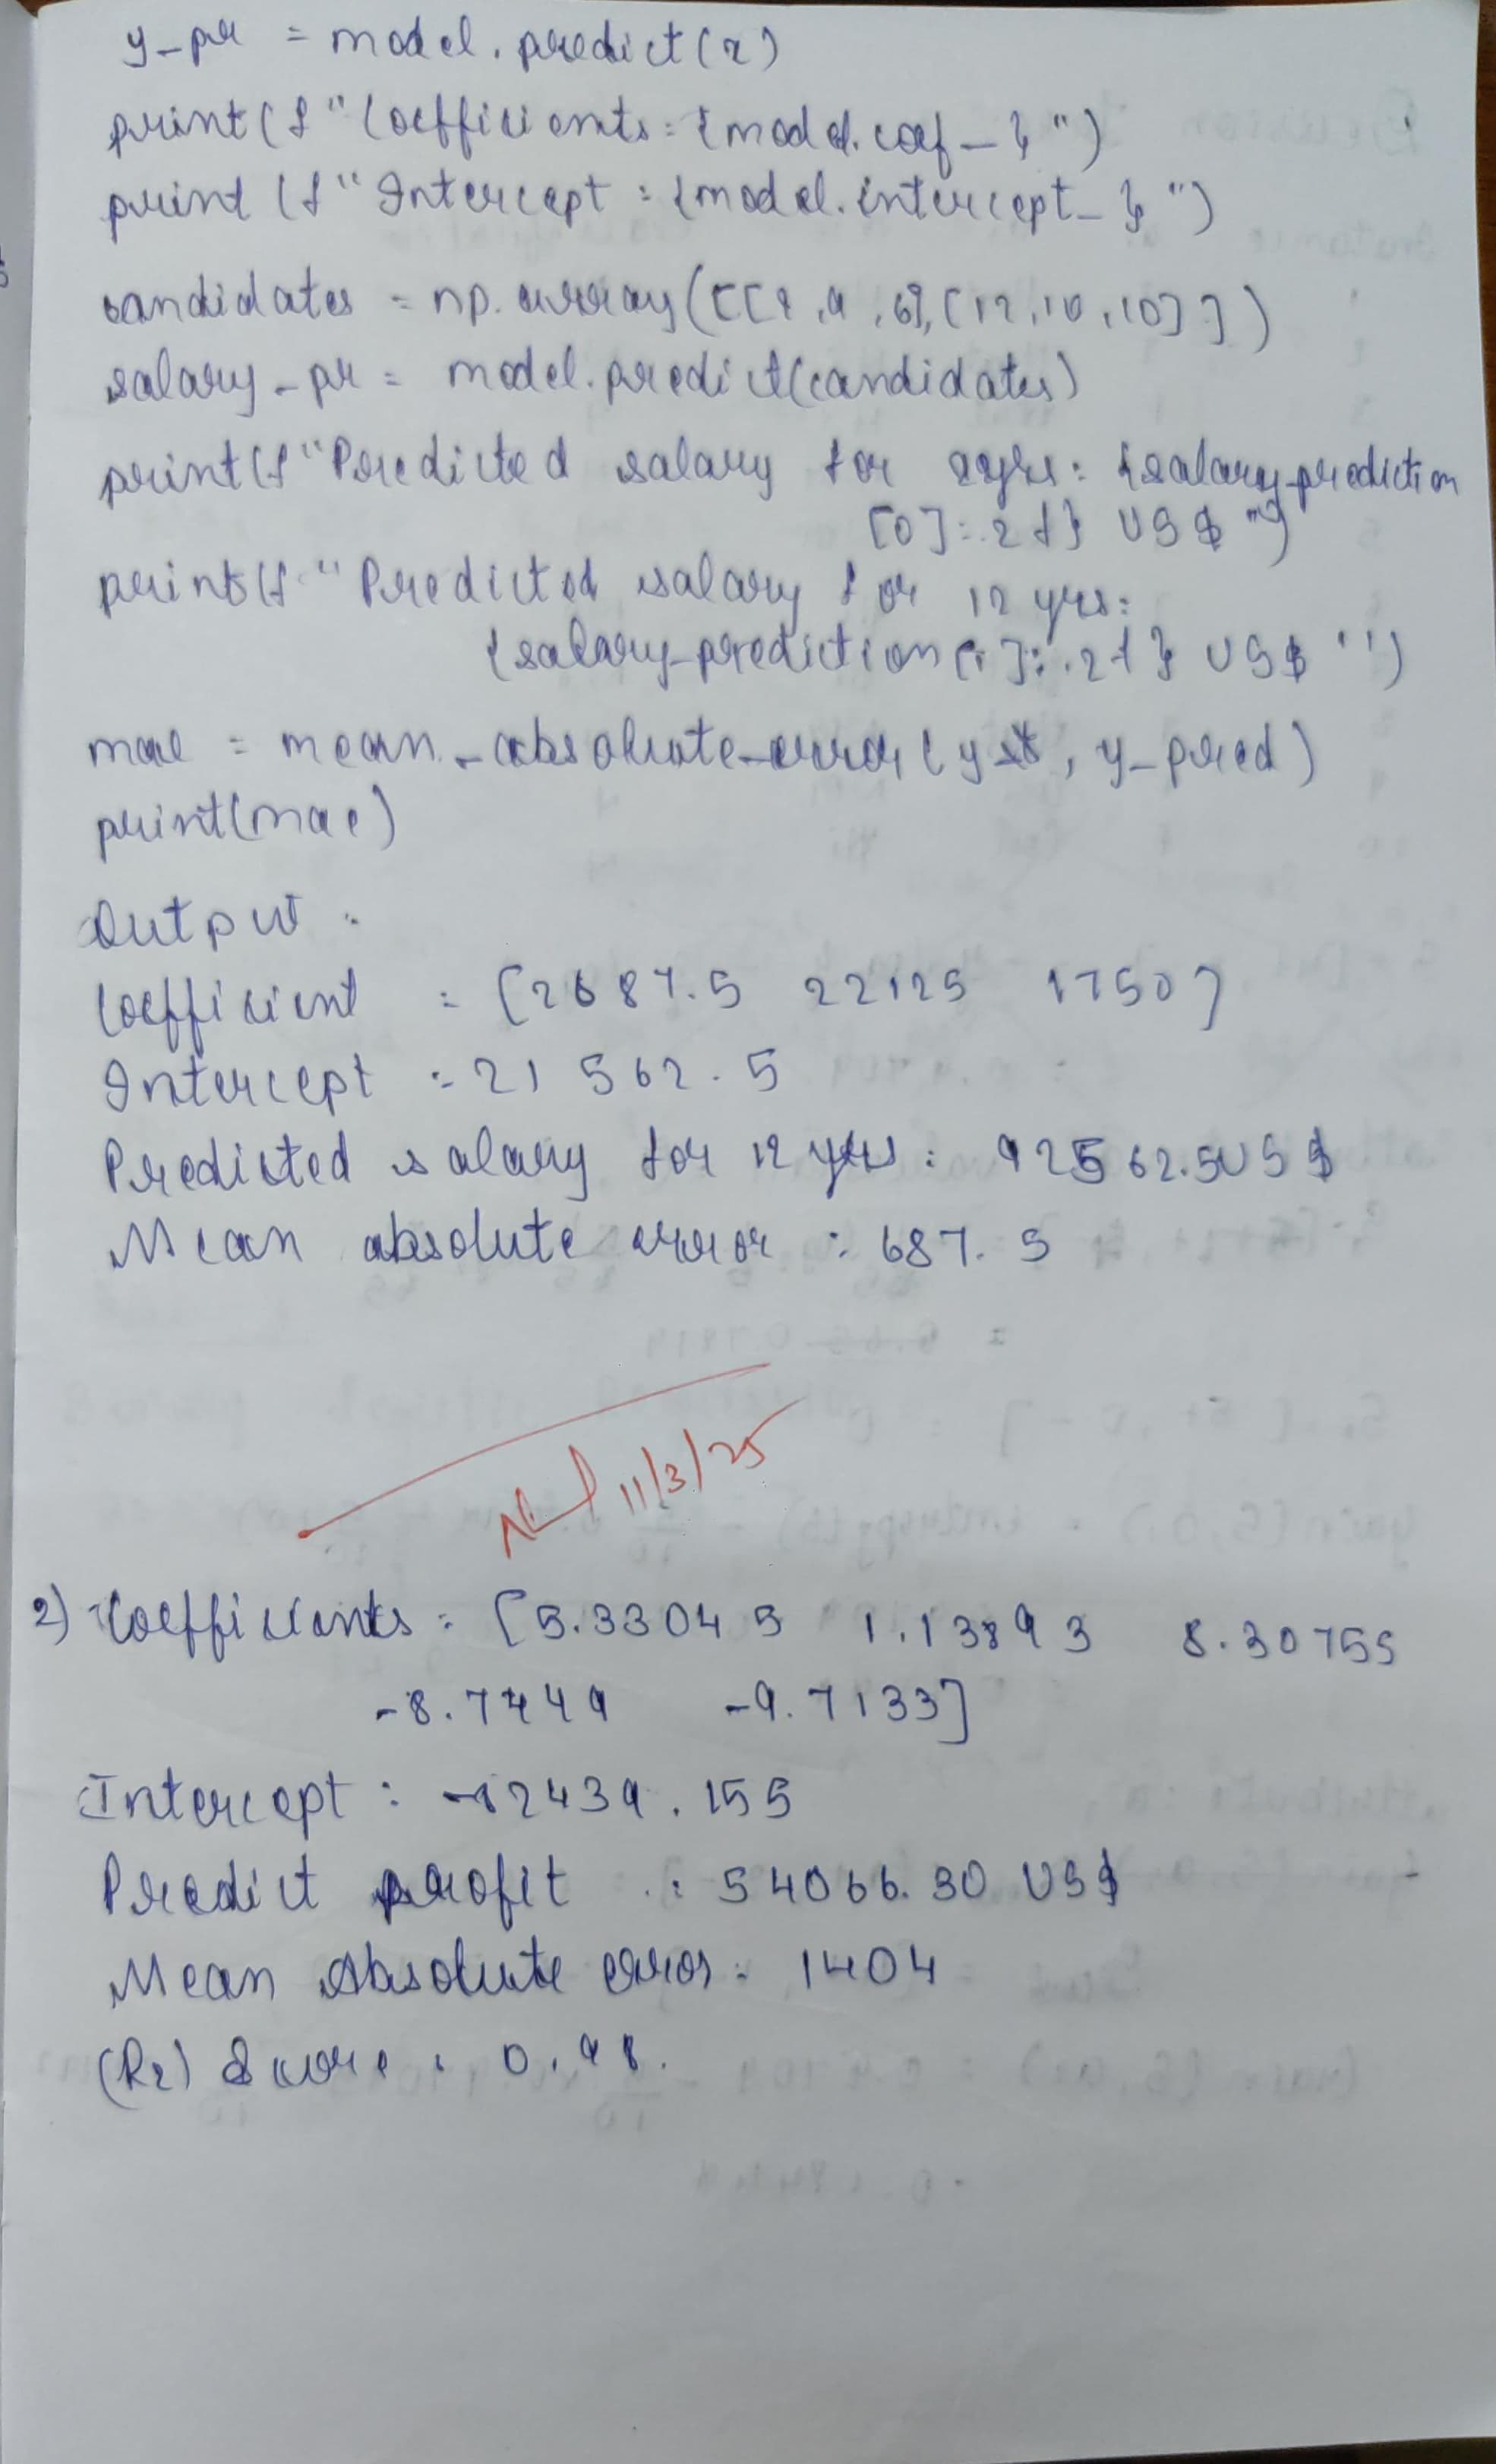 y_pr = model.predict(x)
print(f"Coefficients: {model.coef_}")
print(f"Intercept: {model.intercept_}")
candidates = np.array([[2,9,6],[12,10,10]])
salary_pr = model.predict(candidates)
print(f"Predicted salary for 2yrs: {salary_prediction
[0]:.2f} US$")
print(f"Predicted salary for 12 yrs:
{salary_prediction[1]:.2f} US$")
mae = mean_absolute_error(y, y_pred)
print(mae)
Output:
Coefficient = [2687.5 22125 1750]
Intercept = 21562.5
Predicted salary for 12 yrs: 92562.5US$
Mean absolute error: 687.5
11/3/25
2) Coefficients: [5.33045 1.13893 8.30755
-8.7449 -9.7133]
Intercept: -12439.155
Predict profit : 54066.30 US$
Mean Absolute error: 1404
(R2) Score: 0.98.